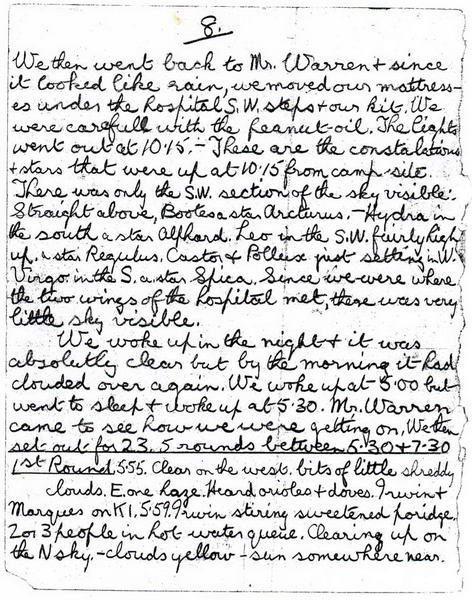 8.
We then went back to Mr. Warren + since
it looked like rain, we moved our mattress-
es under the hospital S.W. steps + our kit. We
were carefull with the peanut-oil. The lights
went out at 10.15. - These are the constalations
+ stars that were up at 10.15 from camp site.
There was only the S.W. section of the sky visible:
Straight above, Bootes a star Arcturus. - Hydra in
the south a star Alphard. Leo in the S.W. fairly high
up. a star Regulus. Castor + Pollux just setting in W.
Virgo. in the S. a star Spica. Since we were where
the two wings of the hospital met, there was very
little sky visible.
We woke up in the night + it was
absolutly clear but by the morning it had
clouded over again. We woke up at 5.00 but
went to sleep + woke up at 5.30. Mr. Warren
came to see how we were getting on. We then
set out for 23. 5 rounds between 5.30 + 7.30
1st Round. 5.55. Clear on the west. bits of little shreddy
clouds. E. one haze. Heard orioles + doves. Irwin +
Marques on K1. 5.59. Irwin stiring sweetened poridge.
2 or 3 people in hot water queue. Clearing up on
the N sky. - clouds yellow - sun somewhere near.